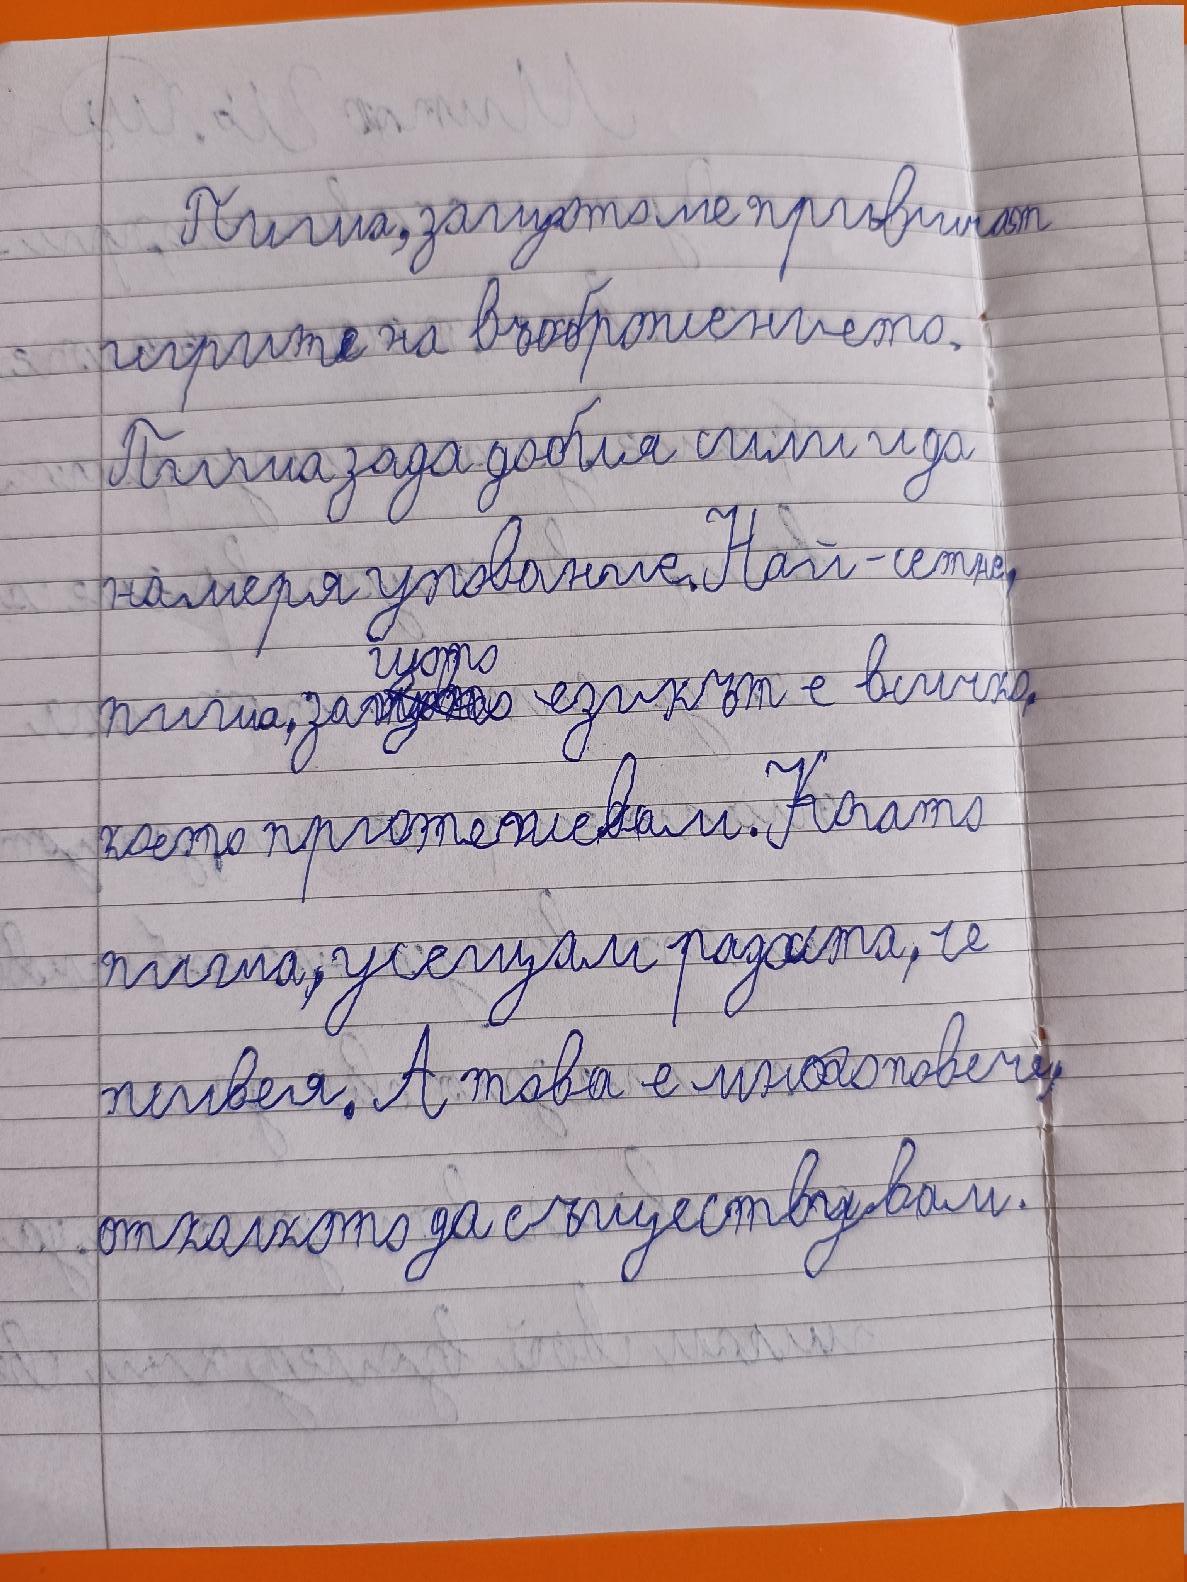 Пиша, защото ме привличат
игрите на въображението.
Пиша за да добия сили и да
намеря упование. Най-сетне,
пиша, защото езикът е всичко,
което притежавам. Когато
пиша, усещам радостта, че
живея. А това е много повече,
отколкото да съществувам.